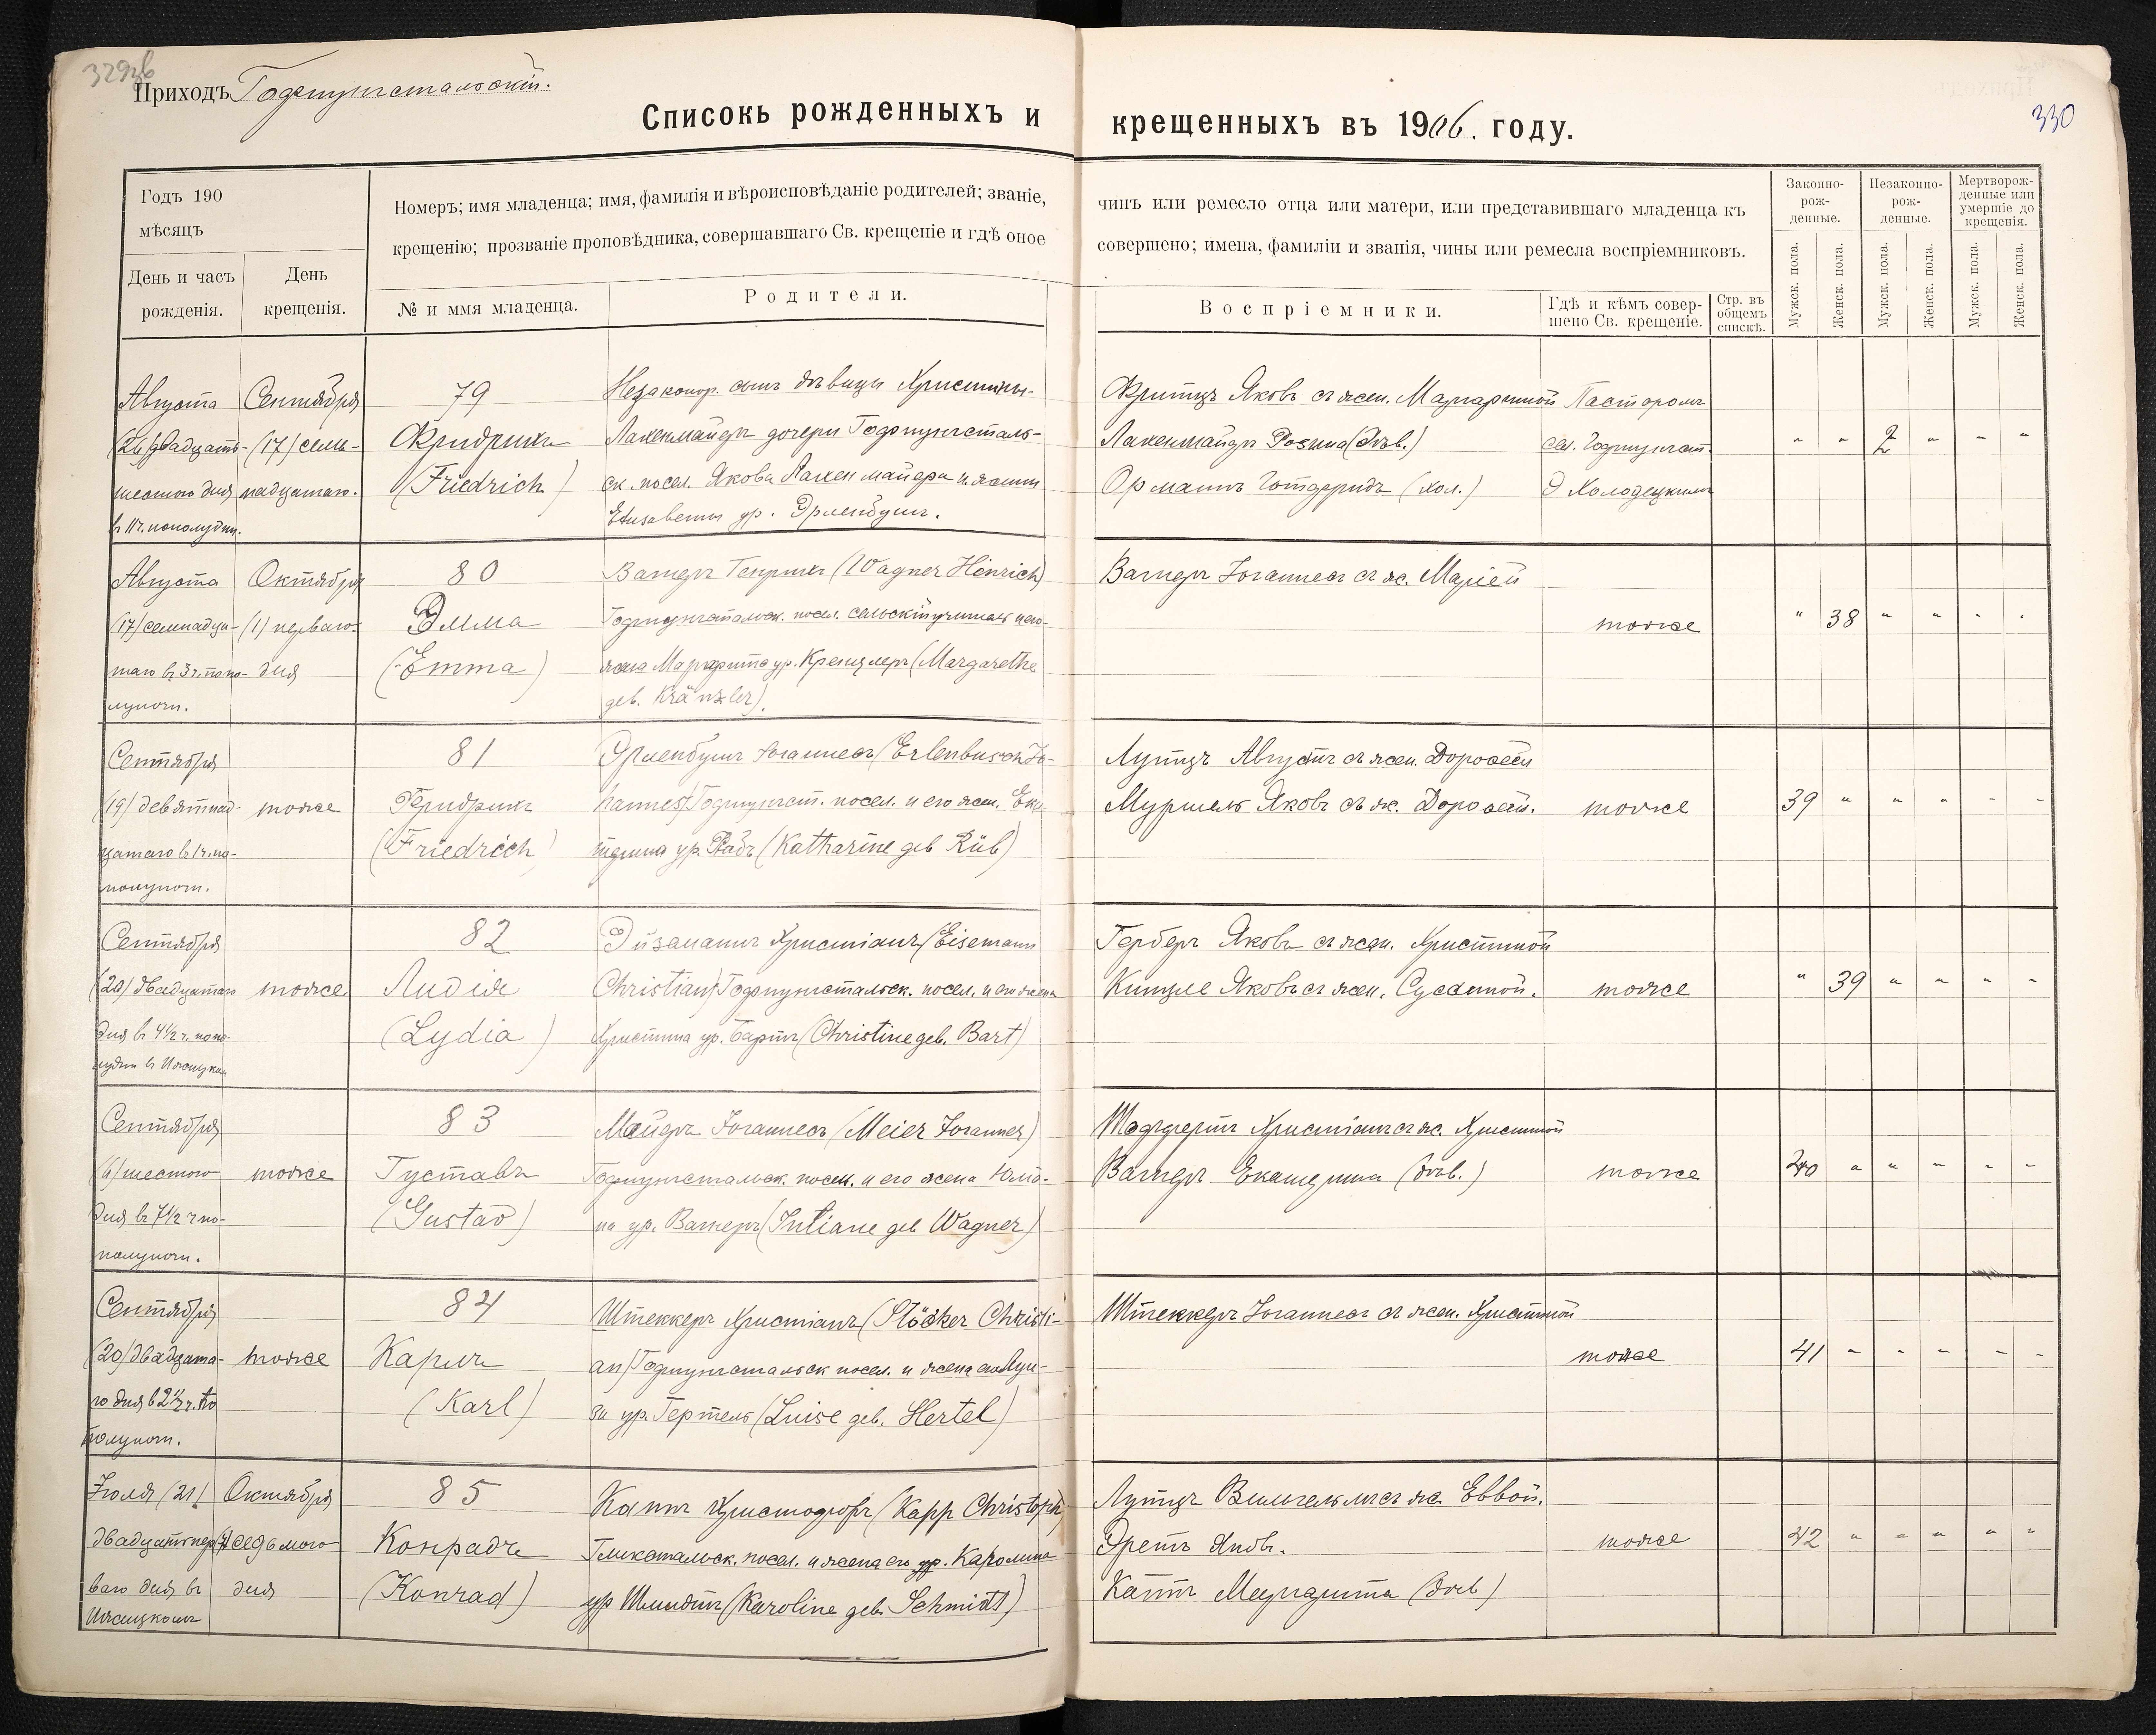 329об
Приходъ Гофнунгстальскій.
330
Списокъ рожденныхъ и крещенныхъ въ 1906. году.
Годъ 190
мѣсяцъ
День и часъ
рожденія.
День
крещенія.
Номеръ; имя младенца; имя, фамилія и вѣроисповѣданіе родителей; званіе,
крещенію; прозваніе проповѣдника, совершавшаго Св. крещеніе и гдѣ оное
№ и ммя младенца.
Родители.
чинъ или ремесло отца или матери, или представившаго младенца къ
совершено; имена, фамиліи и званія, чины или ремесла воспріемниковъ.
Воспріемники.
Гдѣ и кѣмъ совер-
шено Св. крещеніе.
Стр. въ
общемъ
спискѣ.
Законно-
рож-
денные.
Незаконно-
рож-
денные.
Мертворож-
денные или
умершіе до
крещенія.
Мужск. пола.
Женск. пола.
Мужск. пола.
Женск. пола.
Мужск. пола.
Женск. пола.
Августа
(26) двадцать-
шестого дня
в 11 ч. пополудни.
Сентября
(17) семь-
надцатаго.
79
Фридрихъ
(Friedrich)
Незаконор. сынъ дѣвицы Христины
Лакенмайеръ дочери Гофнунгсталь-
ск. посел. Якова Лакенмайера и жены
Елизаветы ур. Эрленбушъ.
Фритцъ Яковъ съ жен. Маргаритой
Лакенмайеръ Розина (дѣв.)
Ортманъ Готфридъ (хол.)
Пасторомъ
сел. Гофнунгст.
Э Холодецкимъ
" " 2 " " "
Августа
(17) семнадца-
таго въ 3 ч. попо-
луночи.
Октября
(1) перваго
дня
80
Эмма
(Emma)
Вагнеръ Генрихъ (Wagner Heinrich)
Гофнунгстальск. посел. сельскій учитель и его
жена Маргарита ур. Кренцлеръ (Margarethe
geb. Kränzler).
Вагнеръ Іоганнесъ съ ж. Маріей
тоже
" 38 " " " "
Сентября
(19) девятнад-
цатаго въ 1 ч. по-
полуночи.
тоже
81
Фридрихъ
(Friedrich)
Эрленбушъ Іоганнесъ (Erlenbusch Jo-
hannes) Гофнунгст. посел. и его жен. Ека
терина ур. (Katharine geb Rüb)
Лутцъ Августъ съ жен. Доротеей
Муршель Яковъ съ ж. Доротеей.
тоже
39 " " " " "
Сентября
(20) двадцатаго
дня въ 4½ ч. попо-
лудни въ
тоже
82
Лидія
(Lydia)
Эйземанъ Христіанъ (Eisemann
Christian) Гофнунгстальск. посел. и его жена
Христина ур. Бартъ (Christine geb. Bart)
Герберъ Яковъ съ жен. Христиной
Китцле Яковъ съ жен. Сусанной.
тоже
" 39 " " " "
Сентября
(6) шестого
дня въ 7½ ч по-
полуночи.
тоже
83
Густавъ
(Gustav)
Майеръ Іоганнесъ (Meier Johannes)
Гофнунгстальск посел. и его жена Юліа-
на ур. Вагнеръ (Juliane geb Wagner)
Христіанъ съ ж. Христиной
Вагнеръ Екатерина (дѣв.)
тоже
40 " " " " "
Сентября
(20) двадцата-
го дня в 2½ ч. по
полуночи.
тоже
84
Карлъ
(Karl)
Штеккеръ Христіанъ (Stöcker Christi-
an) Гофнунгстальск посел. и жена его Луи-
за ур. Гертель (Luise geb. Hertel)
Штеккеръ Іоганнесъ съ жен. Христиной
тоже
41 " " " " "
Іюля (21)
двадцать пер-
ваго дня въ
Октября
(7) седьмого
дня
85
Конрадъ
(Konrad)
Каппъ Христофоръ (Kapp Christoph)
Гликстальск. посел. и жена его ур. Каролина
ур Шмидтъ (Karoline geb. Schmidt)
Лутцъ Вильгельмъ съ ж. Еввой.
Эретъ Яковъ.
Каппъ Маргарита (дѣв)
тоже
42 " " " " "